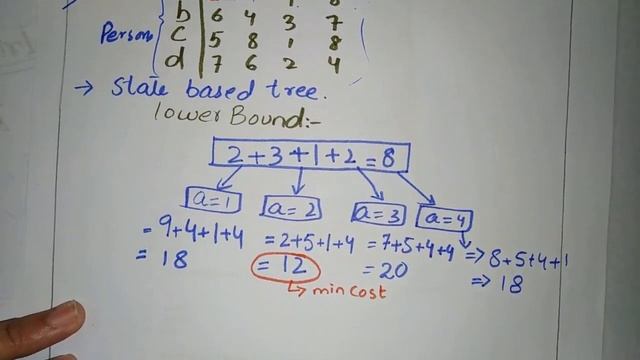 b 6 4 3 7
Person c 5 8 1 8
d 7 6 2 4
→ State based tree.
lower Bound:-
2+3+1+2=8
a=1 a=2 a=3 a=4
=9+4+1+4 =2+5+1+4 =7+5+4+4 => 8+5+4+1
= 18 = 12 =20 => 18
↳ min cost